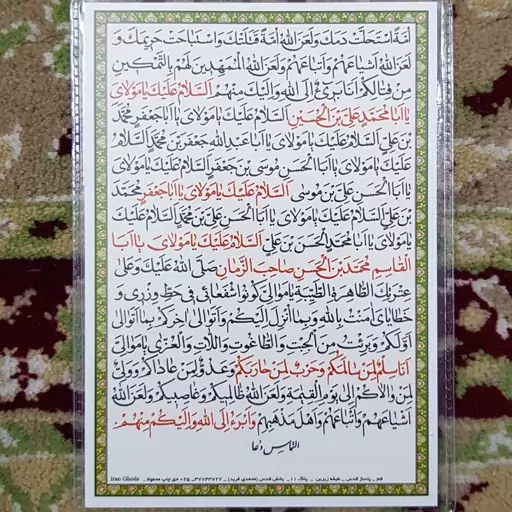 اُمَّةً اسْتَحَلَّتْ دَمَكَ وَلَعَنَ اللهُ اُمَّةً قَتَلَتْكَ وَاسْتَبَاحَتْ حَرِيمَكَ وَ
لَعَنَ اللهُ اَشْيَاعَهُمْ وَاَتْبَاعَهُمْ وَلَعَنَ اللهُ الْمُمَهِّدِينَ لَهُمْ بِالتَّمْكِينِ
مِنْ قِتَالِكُمْ اَنَا بَرِیءٌ اِلَى اللهِ وَاِلَيْكَ مِنْهُمْ اَلسَّلَامُ عَلَيْكَ يَا مَوْلَاىَ
يَا اَبَا مُحَمَّدٍ عَلِىَّ بْنَ الْحُسَيْنِ اَلسَّلَامُ عَلَيْكَ يَا مَوْلَاىَ يَا اَبَا جَعْفَرٍ مُحَمَّدَ
بْنَ عَلِىٍّ اَلسَّلَامُ عَلَيْكَ يَا مَوْلَاىَ يَا اَبَا عَبْدِ اللهِ جَعْفَرَ بْنَ مُحَمَّدٍ اَلسَّلَامُ
عَلَيْكَ يَا مَوْلَاىَ يَا اَبَا الْحَسَنِ مُوسَى بْنَ جَعْفَرٍ اَلسَّلَامُ عَلَيْكَ يَا مَوْلَاىَ
يَا اَبَا الْحَسَنِ عَلِىَّ بْنَ مُوسَى اَلسَّلَامُ عَلَيْكَ يَا مَوْلَاىَ يَا اَبَا جَعْفَرٍ مُحَمَّدَ
بْنَ عَلِىٍّ اَلسَّلَامُ عَلَيْكَ يَا مَوْلَاىَ يَا اَبَا الْحَسَنِ عَلِىَّ بْنَ مُحَمَّدٍ اَلسَّلَامُ عَلَيْكَ
يَا مَوْلَاىَ يَا اَبَا مُحَمَّدٍ الْحَسَنَ بْنَ عَلِىٍّ اَلسَّلَامُ عَلَيْكَ يَا مَوْلَاىَ يَا اَبَا
الْقَاسِمِ مُحَمَّدَ بْنَ الْحَسَنِ صَاحِبَ الزَّمَانِ صَلَّى اللهُ عَلَيْكَ وَعَلَى
عِتْرَتِكَ الطَّاهِرَةِ الطَّيِّبَةِ يَا مَوَالِىَّ كُونُوا شُفَعَائِى فِى حَطِّ وِزْرِى وَ
خَطَايَاىَ آمَنْتُ بِاللهِ وَبِمَا اُنْزِلَ اِلَيْكُمْ وَاَتَوَالَى آخِرَكُمْ بِمَا اَتَوَالَى
اَوَّلَكُمْ وَبَرِئْتُ مِنَ الْجِبْتِ وَالطَّاغُوتِ وَاللَّاتِ وَالْعُزَّى يَا مَوَالِىَّ
اَنَا سِلْمٌ لِمَنْ سَالَمَكُمْ وَحَرْبٌ لِمَنْ حَارَبَكُمْ وَعَدُوٌّ لِمَنْ عَادَاكُمْ وَوَلِىٌّ
لِمَنْ وَالَاكُمْ اِلَى يَوْمِ الْقِيَامَةِ وَلَعَنَ اللهُ ظَالِمِيكُمْ وَغَاصِبِيكُمْ وَلَعَنَ اللهُ
اَشْيَاعَهُمْ وَاَتْبَاعَهُمْ وَاَهْلَ مَذْهَبِهِمْ وَاَبْرَءُ اِلَى اللهِ وَاِلَيْكُمْ مِنْهُمْ.
التماس دعا
قم _ پاساژ قدس _ طبقه زیرین _ پلاک ۱۱ _ پخش قدس (محمدی فرید) _ ۳۷۷۴۳۷۴۲ ۰۲۵ _ حق چاپ محفوظ _ Iran Ghods